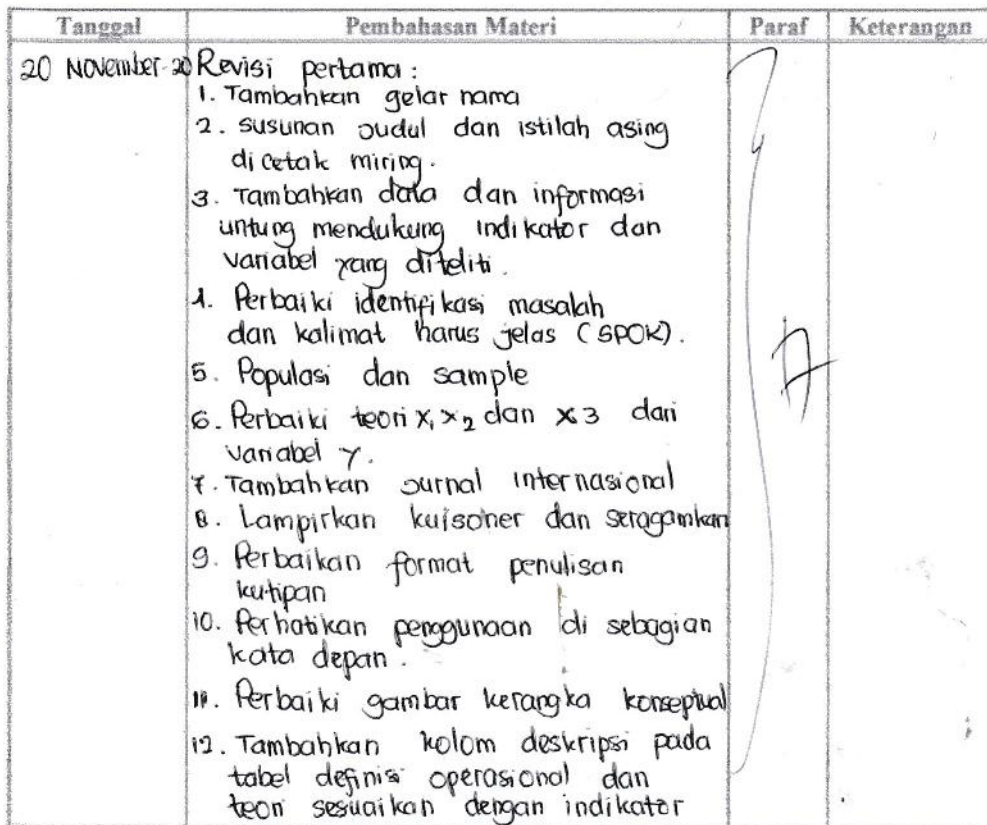 Tanggal Pembahasan Materi Paraf Keterangan
20 November 20 Revisi pertama :
1. Tambahkan gelar nama
2. susunan Judul dan istilah asing
di cetak miring.
3. Tambahkan data dan informasi
untung mendukung indikator dan
variabel yang diteliti.
4. Perbaiki identifikasi masalah
dan kalimat harus jelas (SPOK).
5. Populasi dan sample
6. Perbaiki teori x1 x2 dan x3 dari
variabel y.
7. Tambahkan Jurnal internasional
8. Lampirkan kuisoner dan seragamkan
9. Perbaikan format penulisan
kutipan
10. Perhatikan penggunaan di sebagian
kata depan.
11. Perbaiki gambar kerangka konseptual
12. Tambahkan kolom deskripsi pada
tabel definisi operasional dan
teori sesuaikan dengan indikator